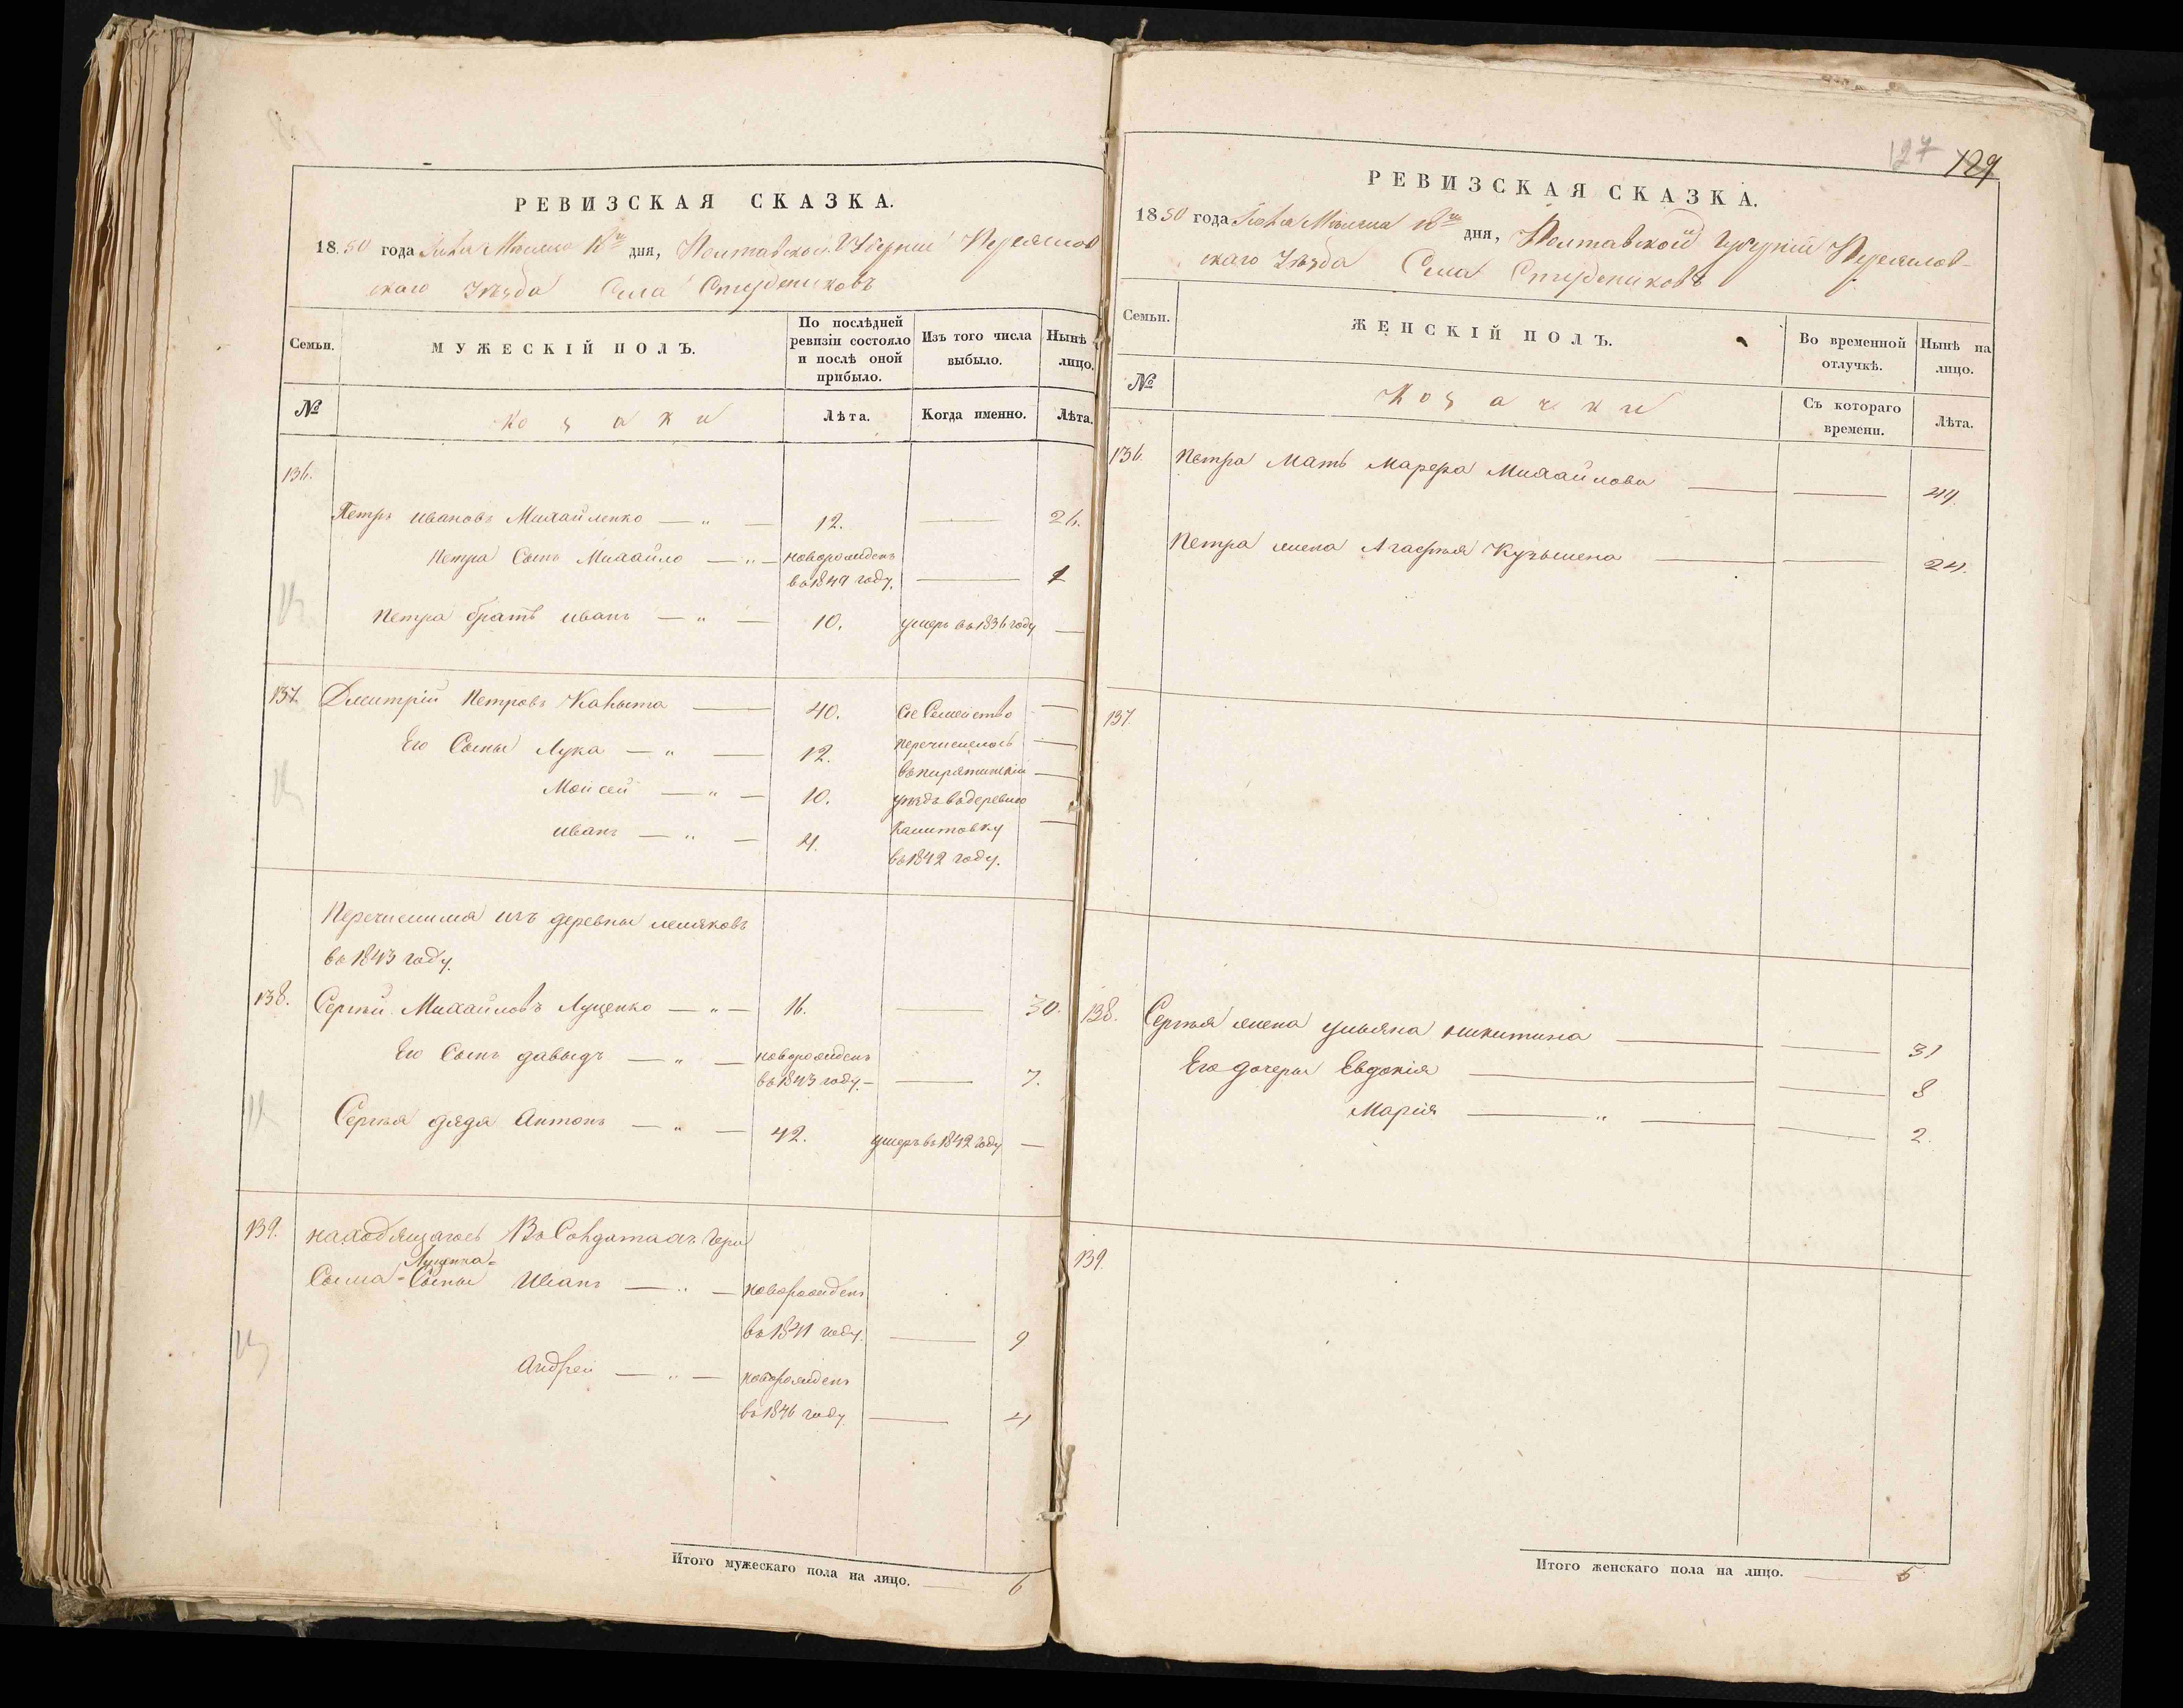 РЕВИЗСКАЯ СКАЗКА.
1850 года Июля Месяца 18го дня, Полтавской Губернии Переяслов
скаго Уезда Села Студениковъ
Семьи.
МУЖЕСКІЙ ПОЛЪ.
По послѣдней ревизіи состояло и послѣ оной прибыло.
Изъ того числа выбыло.
Нынѣ лицо.
№
Козаки
Лѣта.
Когда именно.
Лѣта.
136.
Петръ Ивановъ Михайленко — „ — 12. — 26.
Петра Сынъ Михайло — „ — новорожденъ
въ 1849 году. — 1
Петра братъ Иванъ — „ — 10. умеръ въ 1836 году —
137. Дмитрій Петровъ — 40. Сіе Семейство —
Его Сыны Лука — „ — 12. перечислилось —
въ пирятинскій —
Мойсей — „ — 10. уездъ въ деревню
Иванъ — „ — 4. —
въ 1842 году.
Перечислился изъ деревни лемяковъ
въ 1843 году.
138. Сергѣй Михайловъ Луценко — „ — 16. — 30.
Его Сынъ давыдъ — „ — новорожденъ
въ 1843 году. — 7.
Сергѣя дядя Антонъ — „ — 42. умеръ въ 1842 году —
139. находящагось Въ Солдатахъ Гера
Луценка
Сима Сыны Иванъ — „ — новорожденъ
въ 1841 году. — 9
Андрей — „ — новорожденъ
въ 1846 году — 4
Итого мужескаго пола на лицо. — 6
127 129
РЕВИЗСКАЯ СКАЗКА.
1850 года Июля Месяца 18го дня, Полтавской Губерніи Переяслов-
скаго Уезда Села Студениковъ
Семьи.
ЖЕНСКІЙ ПОЛЪ.
Во временной отлучкѣ.
Нынѣ на лицо.
№
Козачки
Съ котораго времени.
Лѣта.
136. Петра Мать Марфа Михайлова — — 49.
Петра жена Агафья Кузьмена — — 24.
137.
138. Сергѣя жена ульяна никитина — — 31
Его дочеры Евдокія — — 8
Марія — „ — — 2.
139.
Итого женскаго пола на лицо. — 5